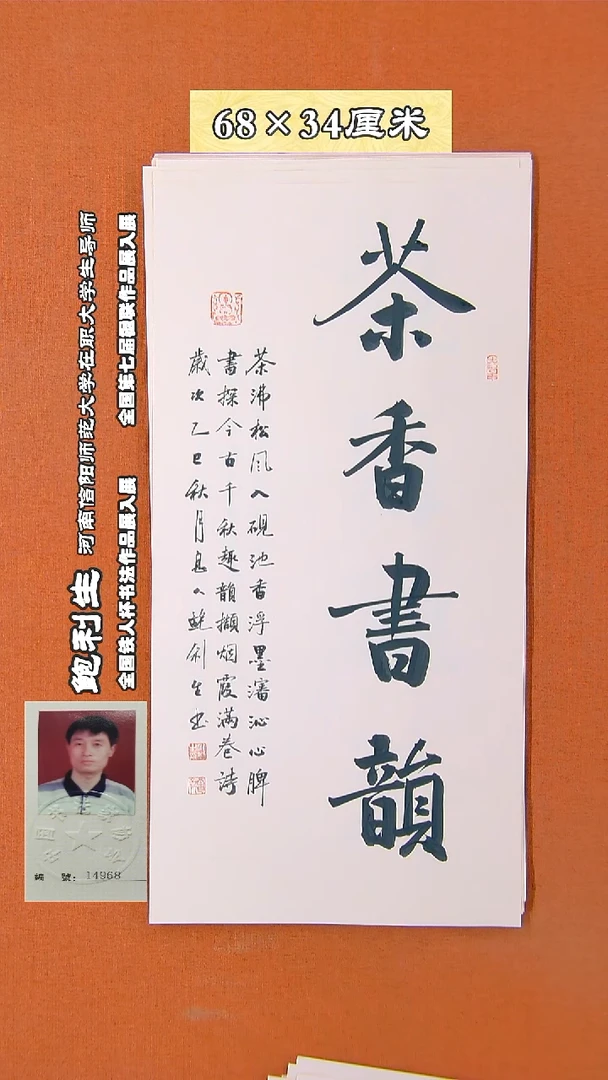 68×34厘米
茶香書韻
茶沸松风入砚池香浮墨瀋沁心脾
書探今古千秋趣韻擷烟霞滿卷詩
歲次乙巳秋月息人鲍利生书
全国铁人杯书法作品展入展
全国第七届楹联作品展入展
鲍利生
河南信阳师范大学在职大学生导师
編 號: 14968